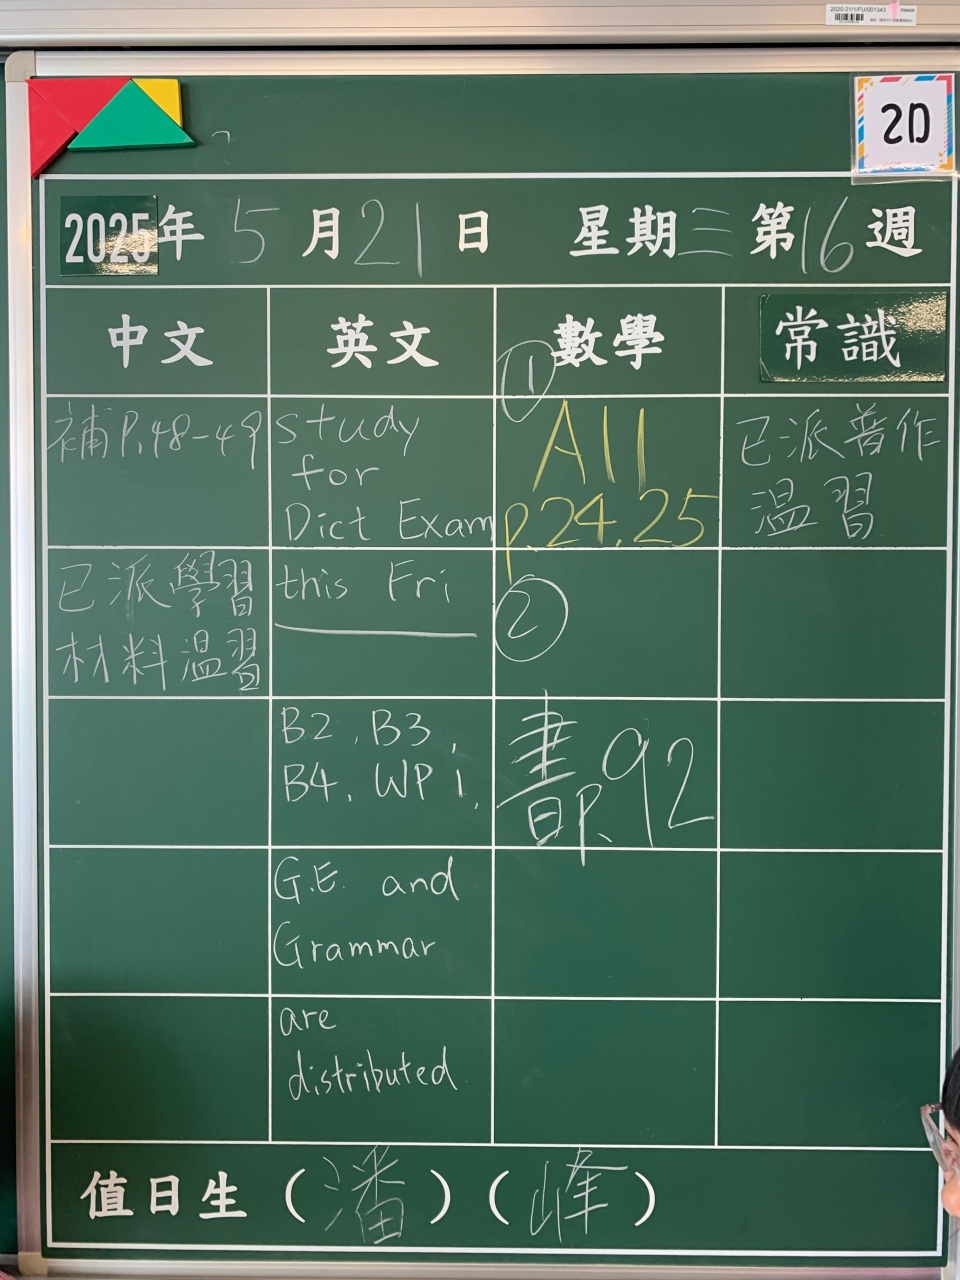 2020-21/1/FU/001343
2D
2025年 5月21日 星期三 第16週
中文
英文
數學
常識
補P.48-49
已派學習
材料溫習
study
for
Dict Exam
this Fri
B2, B3,
B4, WP1,
G.E. and
Grammar
are
distributed
①
All
P.24,25
②
書P.92
已派普作
溫習
值日生(潘)(峰)